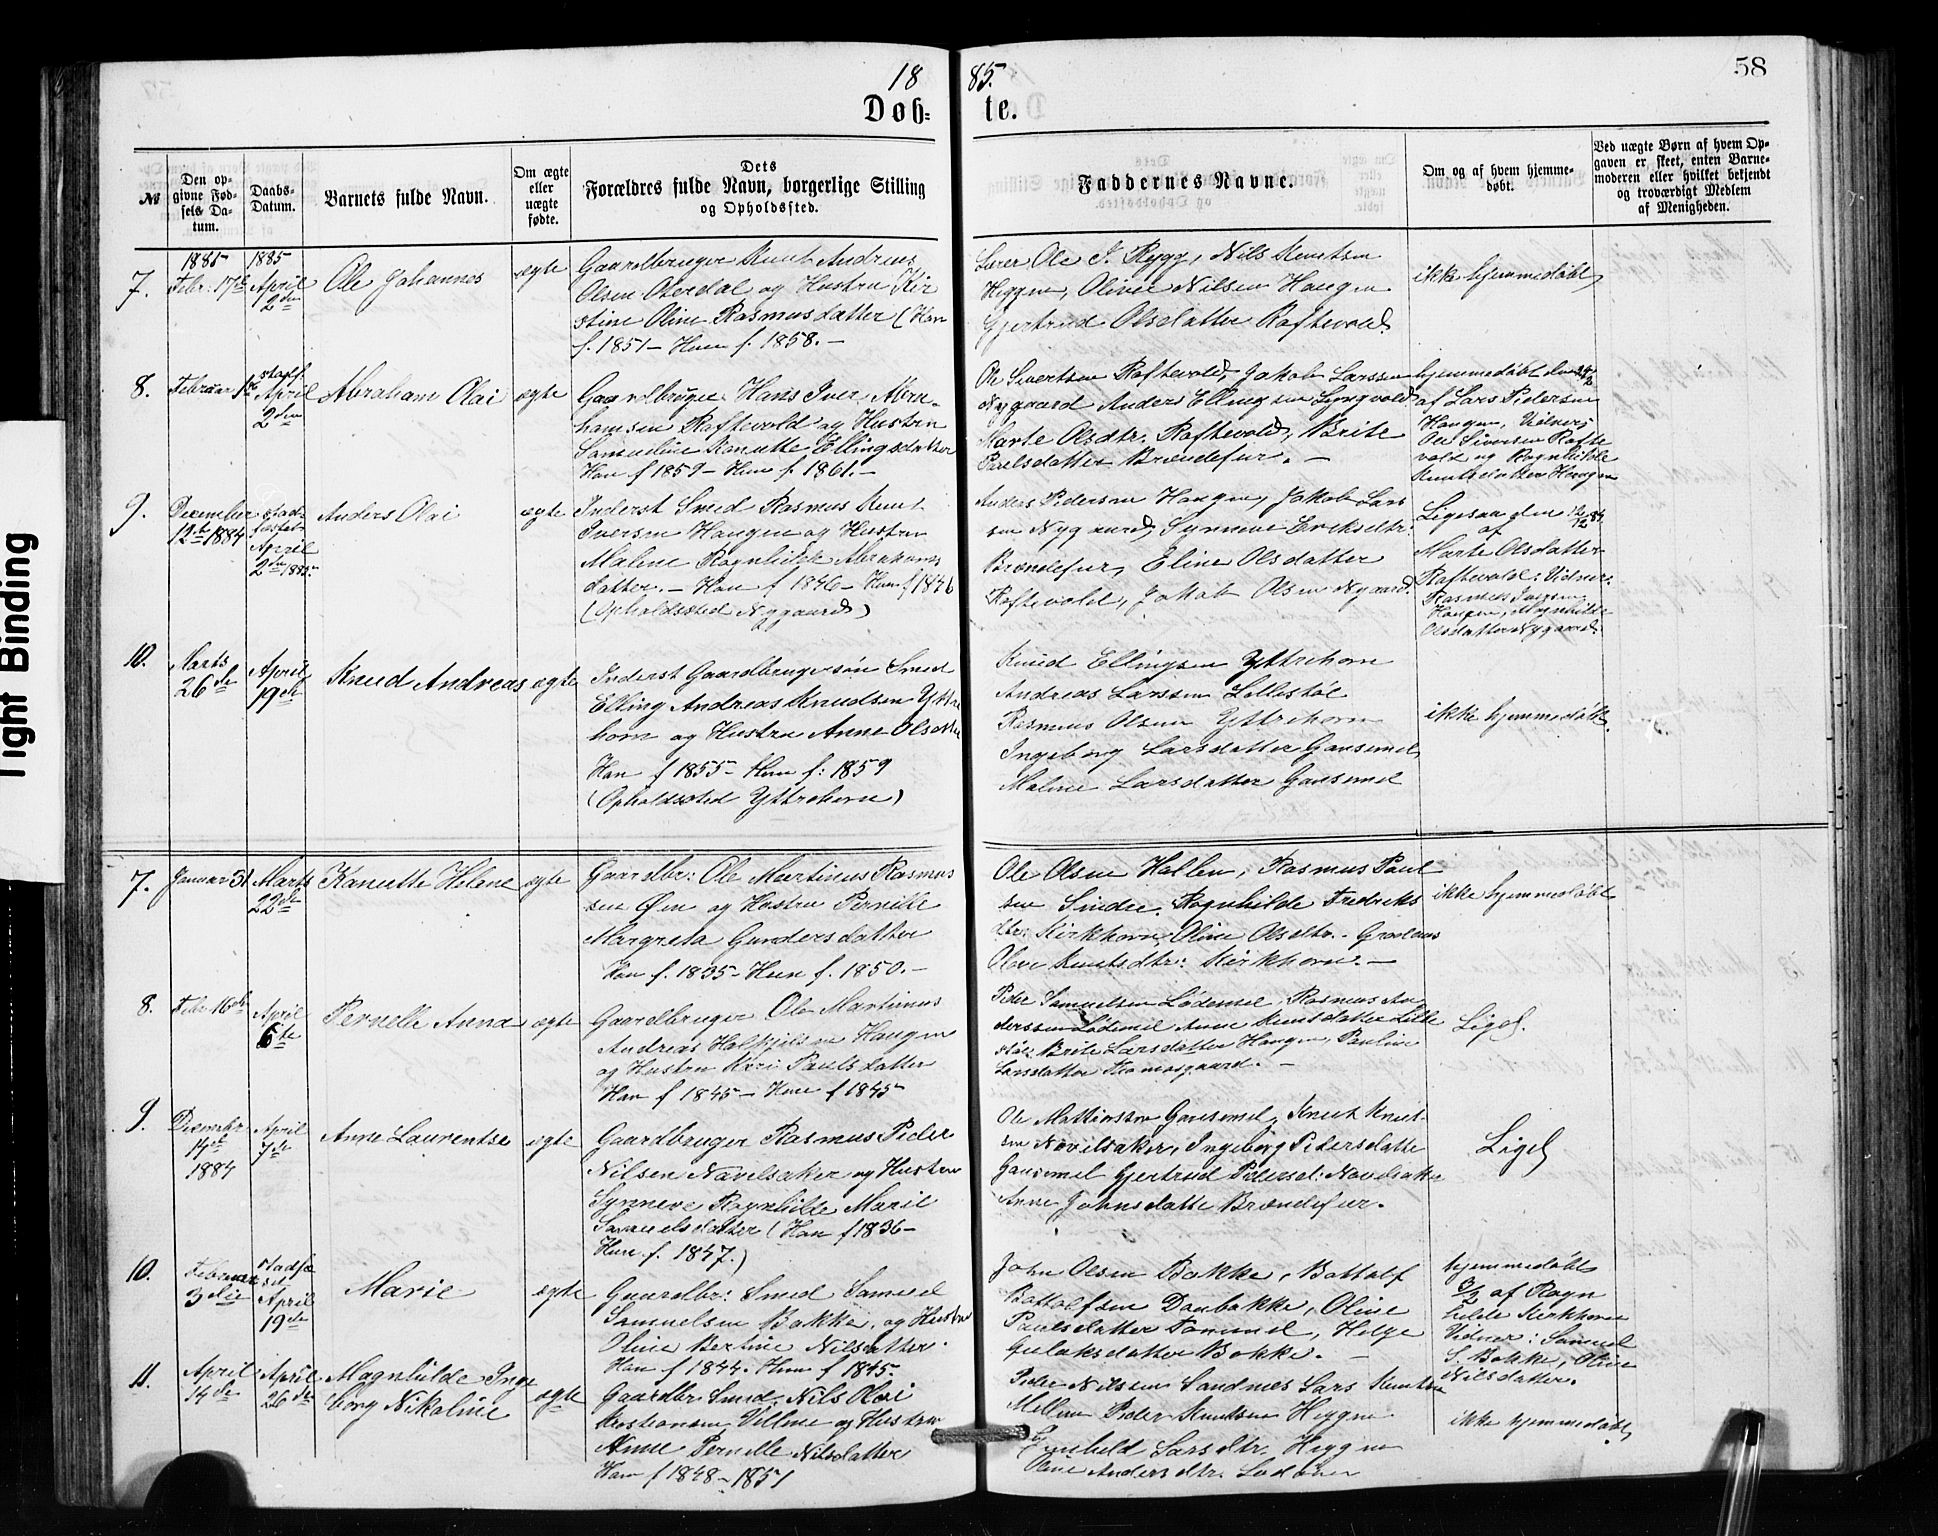 18 85.
58
Døb= te.
№
Den op-
givne Fød-
sels Da-
tum.
Daabs-
Datum.
Barnets fulde Navn.
Om ægte
eller
uægte
fødte.
Dets
Forældres fulde Navn, borgerlige Stilling
og Opholdssted.
Faddernes Navne.
Om og af hvem hjemme-
døbt.
Ved uægte Børn af hvem Op-
gaven er skeet, enten Barne-
moderen eller hvilket bekjendt
og troværdigt Medlem
af Menigheden.
7.
1885
Febr. 17de
1885
April
2den
Ole Johannes
ægte
Gaardbruger Knut Andreas
Olsen Oterdal og Hustru Kir
stine Oline Rasmusdatter (Han
f. 1851 – Hun f. 1858. –
Lærer Ole J. Rygg, Nils Knutsen
Heggen, Oliver Nilsen Haugen
Gjertrud Olsdatter Raftevold
ikke hjemmedøbt
8.
Februar 1ste
stadf.
April
2den
Abraham Olai
ægte
Gaardbruger Hans Iver Abra-
hamsen Raftevold og Hustru
Samueline Kanutte Ellingsdatter
Han f 1859 – Hun f. 1861. –
Ole Sivertsen Raftevold, Jakob Larssen
Nygaard Anders Ellingsen Lyngvold
Marte Olsdtr. Raftevold, Brite
Paulsdatter Brændefur. –
hjemmedøbt den
af Lars Pedersen
Haugen, Vidner:
Ole Sivertsen Rafte
vold og Ragnhilde
Knutsdatter Haugen
9.
December
12te 1884
stad-
fæstet
April
2den 1885.
Anders Olai
ægte
Inderst Smed Rasmus Knut
Iversen Haugen og Hustru
Malene Ragnhilde Abrahams
datter. – Han f 1846 – Hun f 1846
(Opholdssted Nygaard)
Anders Pedersen Haugen, Jakob Lars
sen Nygaard, Synneve Eriksdtr.
Brændefur, Eline Olsdatter
Raftevold, Jakob Olsen Nygaard.
Ligesaa den 16/12 84.
af
Marte Olsdatter
Raftevold: Vidner:
Rasmus Iversen
Haugen, Magnhilde
Olsdatter Nygaard.
10.
Marts
26de
April
19de
Knud Andreas
ægte
Inderst Gaardbrugersøn Smed
Elling Andreas Knudsen Ytre
horn og Hustru Anne Olsdtr
Han f 1855 – Hun f: 1859
(Opholdssted Yttrehorn)
Knud Ellingsen Yttrehorn
Andreas Larssen Lillestøl
Rasmus Olsen Yttrehorn
Ingeborg Larsdatter Gausemel
Malene Larsdatter Gausemel
ikke hjemmedøbt.
7.
Januar 31
Marts
22de
Kanutte Helene
ægte
Gaardbr: Ole Martinus Rasmus
sen Øen og Hustru Pernille
Margreta Gundersdatter
Han f. 1835 – Hun f. 1850. –
Ole Olsen Hallen, Rasmus Paul
sen Sindre. Ragnhilde Fredriks
dtr: Kirkhorn, Oline Olsdtr.
Olave Knutsdtr: Kirkhorn. –
ikke hjemmedøbt
8.
Febr. 16de
April
6te
Pernelle Anna
ægte
Gaardbruger Ole Martinus
Andreas Haugen
og Hustru Kari Paulsdatter
Han f 1845 – Hun f 1845
Peder Samuelsen Lødemel, Rasmus An
derssen Lødemel Anne Knutsdatter Lille
støl: Brite Larsdatter Haugen, Pauline
Larsdatter Thomasgaard. –
Ligel.
9.
December
14de
1884
April
7de
Anne Laurentse
ægte
Gaardbruger Rasmus Peder
Nilsen Navelsaker og Hustru
Synneve Ragnhilde Marie
Samuelsdatter (Han f 1836 –
Hun f. 1847.)
Ole Mattiassen Gausemel, Knut Knut-
sen Navelsaker, Ingeborg Pedersdatter
Gausemel Gjertrud Pedersd: Navelsaker
Anne Johnsdatter Brændefur.
Ligel
10.
Februar
3die
stadfæ
stet
April
19de
Marie
ægte
Gaardbr: Smed Samuel
Samuelsen Bakke, og Hustru
Oline Bertine Nilsdatter.
Han f 1844. Hun f 1845.
John Olsen Bakke, Bottolf
Bottolfsen Daubakke, Oline
Paulsdatter Tommel, Helge
Gulaksdatter Bakke. –
hjemmedøbt
3/2 af Ragn
hilde Kirkhorn
Vidner: Samuel
S. Bakke, Oline
Nilsdatter.
11.
April
14de
April
26de
Magnhilde Inge
borg Nikoline
ægte
Gaardbr. Smed, Nils Olai
og Hustru
Anne Pernelle Nilsdatter
Han f 1848 – 1851
Peder Nilssen Sandnes Lars Knutsen
Mellem Peder Knutsen Heggen
Gunhild Larsdtr. Heggen
Oline Andersdtr. Lødøen
ikke hjemmedøbt
Tight Binding